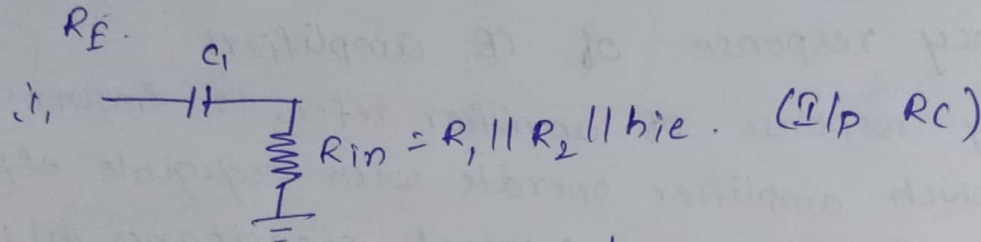 RE.
C1
Rin = R1 || R2 || hie. (I/p RC)